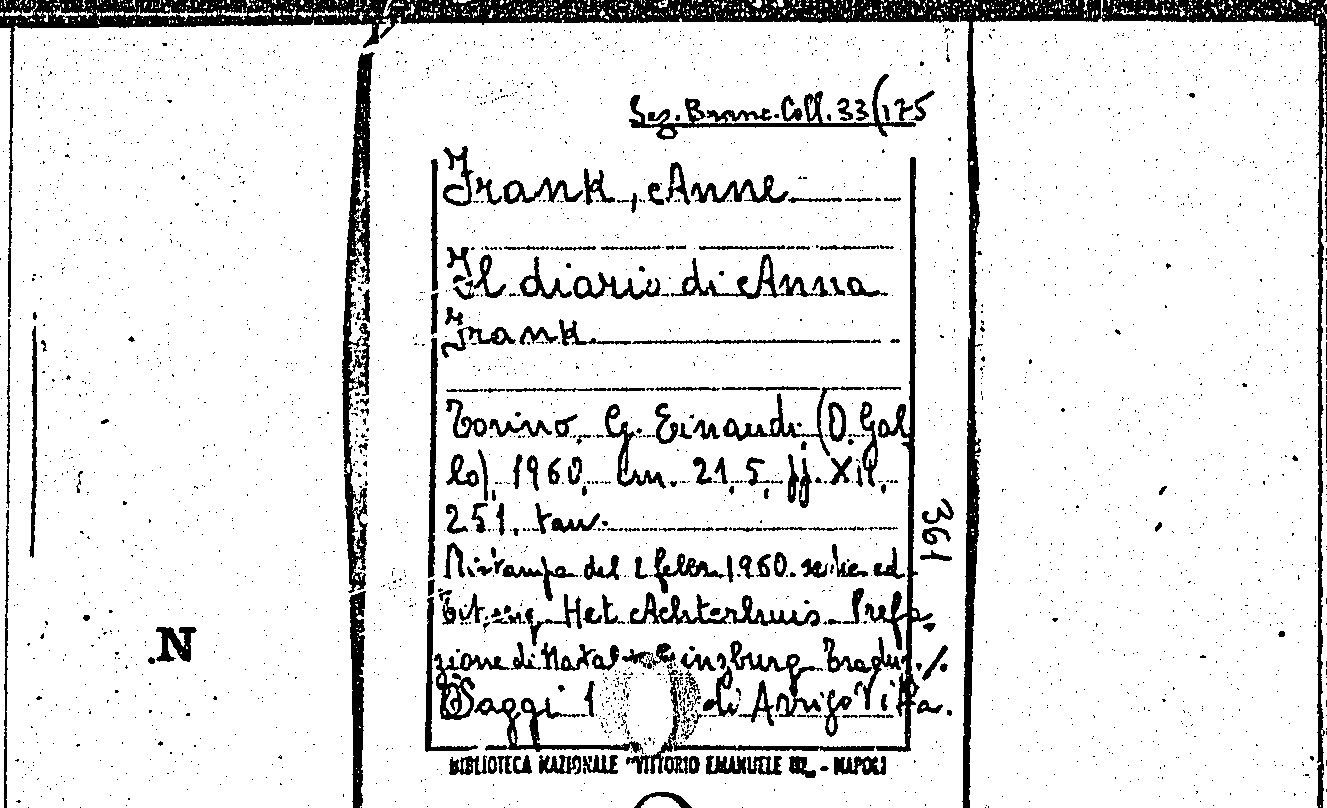 Sez. Branc. Coll. 33(175
Frank, Anne
Il diario di Anna
Frank.
Torino, G. Einaudi (D. Gal
lo), 1960, cm. 21,5, pp. XII,
251. tav.
Ristampa del 2 febbr. 1960. ed.
Tit. orig. Het Achterhuis. Prefa
zione di Natal Ginzburg. Traduz. ./.
Saggi 1 di Arrigo Vita.
361
N
BIBLIOTECA NAZIONALE "VITTORIO EMANUELE III" - NAPOLI